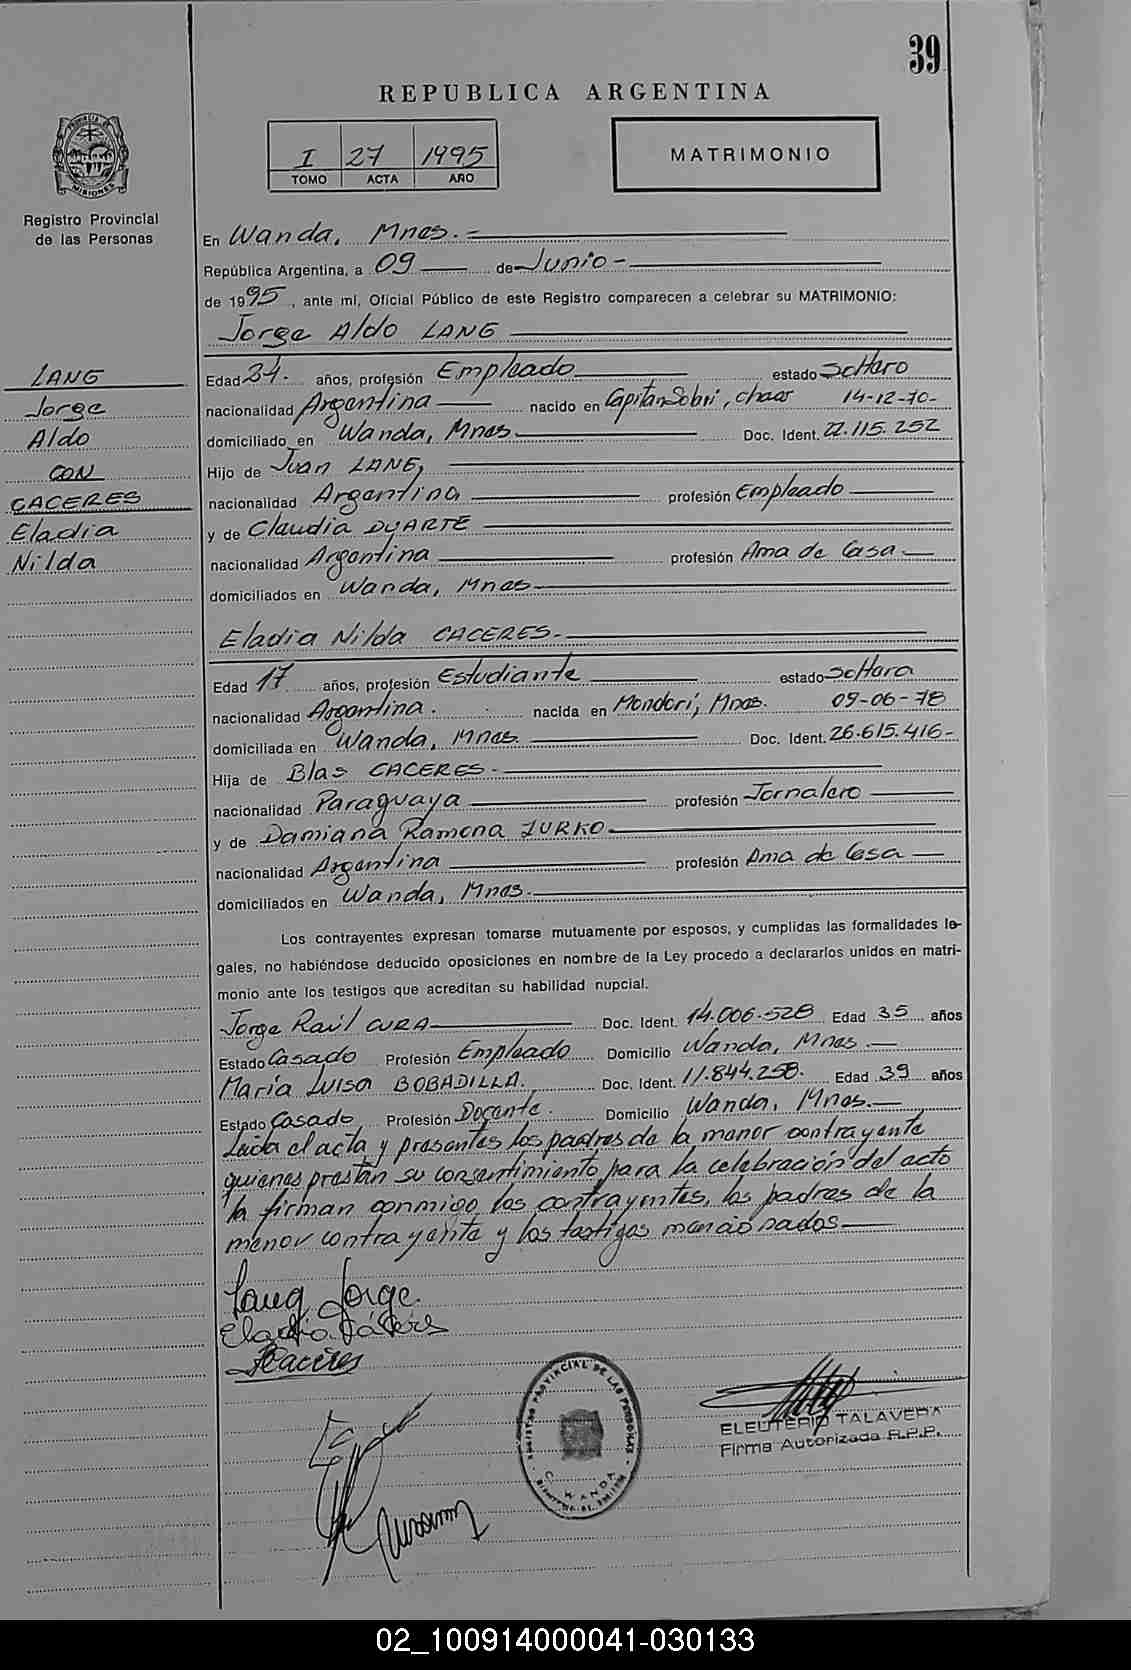 39
REPUBLICA ARGENTINA
I 27 1995
TOMO ACTA AÑO
MATRIMONIO
PROVINCIA DE MISIONES
Registro Provincial
de las Personas
En Wanda, Mnes.-
República Argentina, a 09 de Junio-
de 1995, ante mí, Oficial Público de este Registro comparecen a celebrar su MATRIMONIO:
Jorge Aldo LANG
LANG
Jorge
Aldo
CON
CACERES
Eladia
Nilda
Edad 24. años, profesión Empleado estado Soltero
nacionalidad Argentina nacido en Capitán Solari, chaco 14-12-70-
domiciliado en Wanda, Mnes Doc. Ident. 22.115.252
Hijo de Juan LANG,
nacionalidad Argentina profesión Empleado
y de Claudia DUARTE
nacionalidad Argentina profesión Ama de Casa
domiciliados en Wanda, Mnes
Eladia Nilda CACERES.-
Edad 17 años, profesión Estudiante estado Soltera
nacionalidad Argentina. nacida en Mondorí, Mnes. 09-06-78
domiciliada en Wanda, Mnes. Doc. Ident. 26.615.416-
Hija de Blas CACERES-
nacionalidad Paraguaya profesión Jornalero
y de Damiana Ramona ZURKO
nacionalidad Argentina profesión Ama de Casa
domiciliados en Wanda, Mnes.
Los contrayentes expresan tomarse mutuamente por esposos, y cumplidas las formalidades le-
gales, no habiéndose deducido oposiciones en nombre de la Ley procedo a declararlos unidos en matri-
monio ante los testigos que acreditan su habilidad nupcial.
Jorge Raúl CURA Doc. Ident. 14.006.528 Edad 35 años
Estado Casado Profesión Empleado Domicilio Wanda, Mnes.
María Luisa BOBADILLA. Doc. Ident. 11.844.258. Edad 39 años
Estado Casado Profesión Docente. Domicilio Wanda, Mnes.
Leída el acta y presentes los padres de la menor contrayente
quienes prestan su consentimiento para la celebración del acto
la firman conmigo los contrayentes, los padres de la
menor contrayente y los testigos mencionados
Lang Jorge.
Eladia Cáceres
Caceres
REGISTRO PROVINCIAL DE LAS PERSONAS
WANDA
ELEUTERIO TALAVERA
Firma Autorizada R.P.P.
02_100914000041-030133